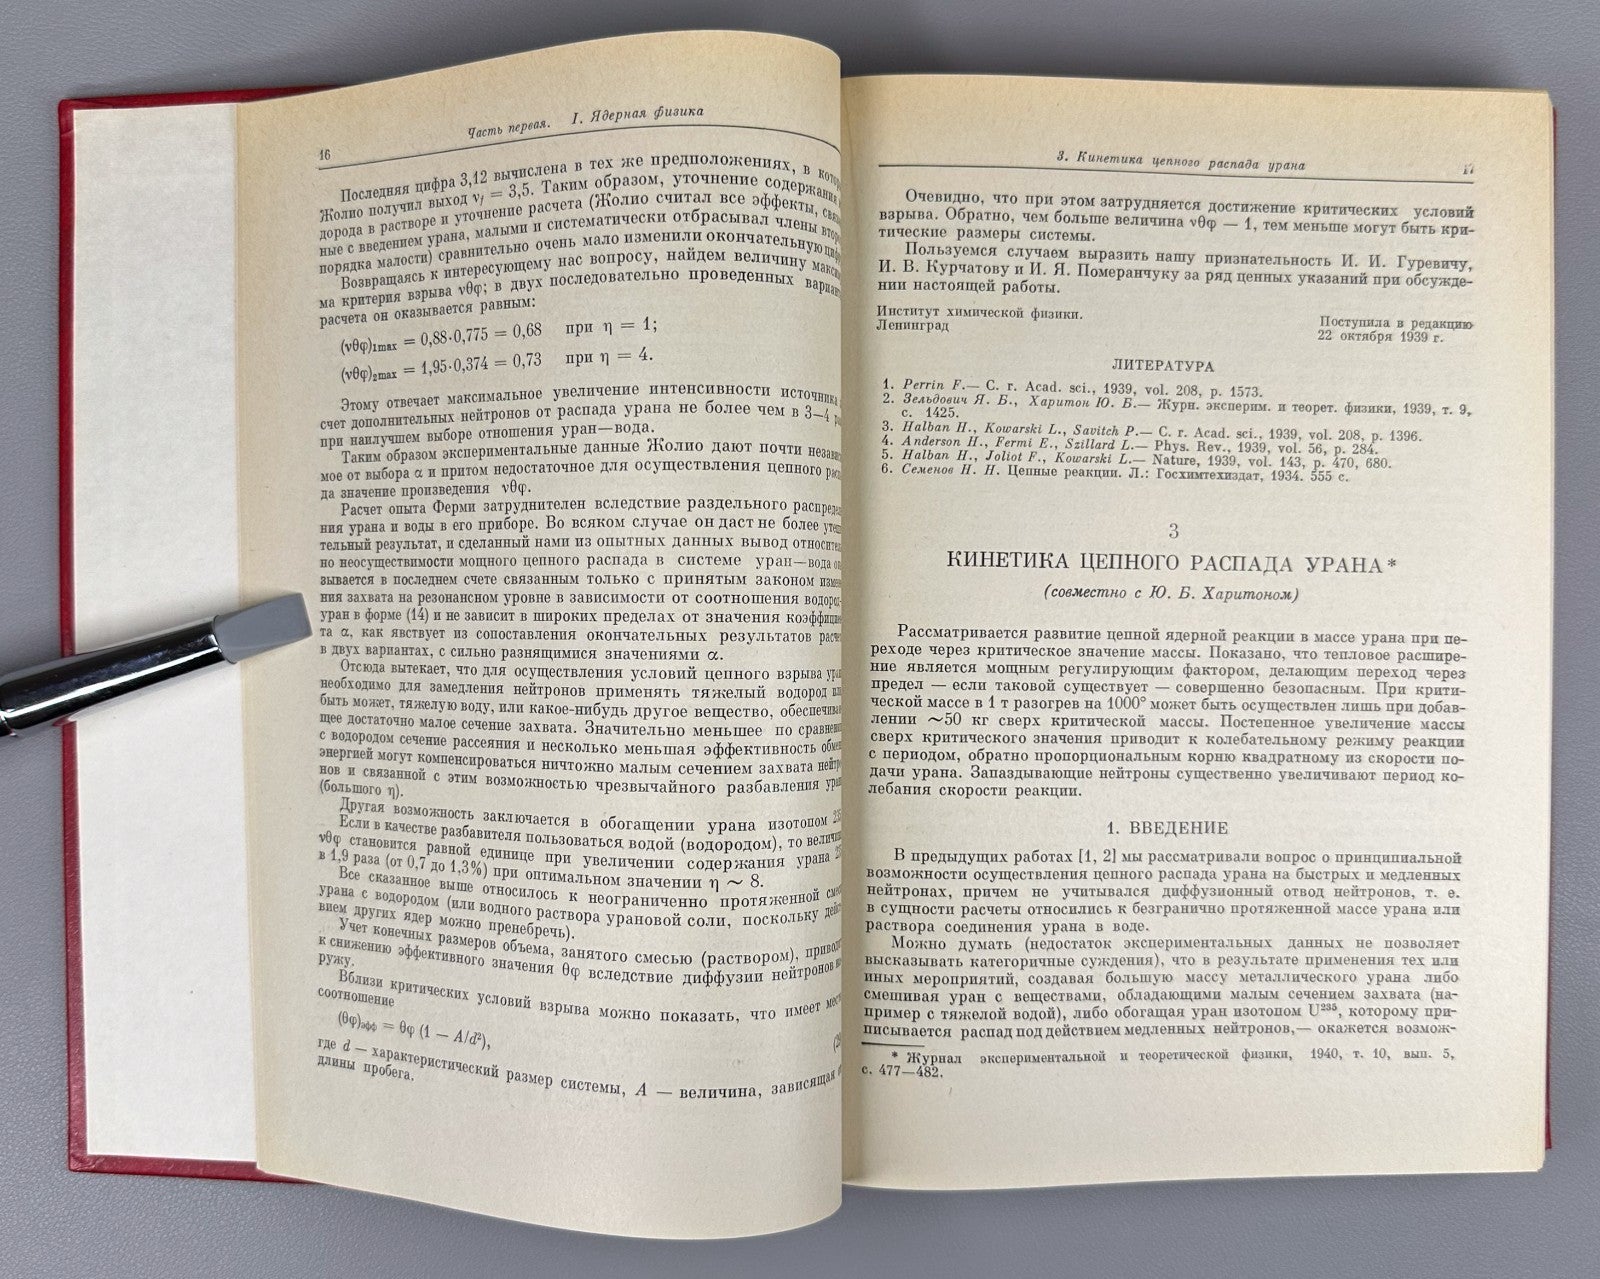 16
Часть первая. I. Ядерная физика
Последняя цифра 3,12 вычислена в тех же предположениях, в
Жолио получил выход νf = 3,5. Таким образом, уточнение содержания
дорода в растворе и уточнение расчета (Жолио считал все эффекты,
ные с введением урана, малыми и систематически отбрасывал члены
порядка малости) сравнительно очень мало изменили окончательную
Возвращаясь к интересующему нас вопросу, найдем величину
ма критерия взрыва νθφ; в двух последовательно проведенных
расчета он оказывается равным:
(νθφ)1max = 0,88·0,775 = 0,68 при η = 1;
(νθφ)2max = 1,95·0,374 = 0,73 при η = 4.
Этому отвечает максимальное увеличение интенсивности источника
счет дополнительных нейтронов от распада урана не более чем в 3—4
при наилучшем выборе отношения уран—вода.
Таким образом экспериментальные данные Жолио дают почти
мое от выбора α и притом недостаточное для осуществления цепного
да значение произведения νθφ.
Расчет опыта Ферми затруднителен вследствие раздельного
ния урана и воды в его приборе. Во всяком случае он даст не более
тельный результат, и сделанный нами из опытных данных вывод
но неосуществимости мощного цепного распада в системе уран—вода
зывается в последнем счете связанным только с принятым законом
ния захвата на резонансном уровне в зависимости от соотношения
уран в форме (14) и не зависит в широких пределах от значения
та α, как явствует из сопоставления окончательных результатов
в двух вариантах, с сильно разнящимися значениями α.
Отсюда вытекает, что для осуществления условий цепного взрыва
необходимо для замедления нейтронов применять тяжелый водород
быть может, тяжелую воду, или какое-нибудь другое вещество,
щее достаточно малое сечение захвата. Значительно меньшее по
с водородом сечение рассеяния и несколько меньшая эффективность
энергией могут компенсироваться ничтожно малым сечением захвата
нов и связанной с этим возможностью чрезвычайного разбавления
(большого η).
Другая возможность заключается в обогащении урана изотопом
Если в качестве разбавителя пользоваться водой (водородом), то
νθφ становится равной единице при увеличении содержания урана
в 1,9 раза (от 0,7 до 1,3%) при оптимальном значении η ∼ 8.
Все сказанное выше относилось к неограниченно протяженной
урана с водородом (или водного раствора урановой соли, поскольку
вием других ядер можно пренебречь).
Учет конечных размеров объема, занятого смесью (раствором),
к снижению эффективного значения θφ вследствие диффузии нейтронов
ружу.
Вблизи критических условий взрыва можно показать, что имеет
соотношение
(θφ)эфф = θφ (1 — A/d²),
где d — характеристический размер системы, A — величина, зависящая
длины пробега.
3. Кинетика цепного распада урана
17
Очевидно, что при этом затрудняется достижение критических условий
взрыва. Обратно, чем больше величина νθφ — 1, тем меньше могут быть кри-
тические размеры системы.
Пользуемся случаем выразить нашу признательность И. И. Гуревичу,
И. В. Курчатову и И. Я. Померанчуку за ряд ценных указаний при обсужде-
нии настоящей работы.
Институт химической физики.
Ленинград
Поступила в редакцию
22 октября 1939 г.
ЛИТЕРАТУРА
1. Perrin F.— C. r. Acad. sci., 1939, vol. 208, p. 1573.
2. Зельдович Я. Б., Харитон Ю. Б.— Журн. эксперим. и теорет. физики, 1939, т. 9,
с. 1425.
3. Halban H., Kowarski L., Savitch P.— C. r. Acad. sci., 1939, vol. 208, p. 1396.
4. Anderson H., Fermi E., Szillard L.— Phys. Rev., 1939, vol. 56, p. 284.
5. Halban H., Joliot F., Kowarski L.— Nature, 1939, vol. 143, p. 470, 680.
6. Семенов Н. Н. Цепные реакции. Л.: Госхимтехиздат, 1934. 555 с.
3
КИНЕТИКА ЦЕПНОГО РАСПАДА УРАНА*
(совместно с Ю. Б. Харитоном)
Рассматривается развитие цепной ядерной реакции в массе урана при пе-
реходе через критическое значение массы. Показано, что тепловое расшире-
ние является мощным регулирующим фактором, делающим переход через
предел — если таковой существует — совершенно безопасным. При крити-
ческой массе в 1 т разогрев на 1000° может быть осуществлен лишь при добав-
лении ∼50 кг сверх критической массы. Постепенное увеличение массы
сверх критического значения приводит к колебательному режиму реакции
с периодом, обратно пропорциональным корню квадратному из скорости по-
дачи урана. Запаздывающие нейтроны существенно увеличивают период ко-
лебания скорости реакции.
1. ВВЕДЕНИЕ
В предыдущих работах [1, 2] мы рассматривали вопрос о принципиальной
возможности осуществления цепного распада урана на быстрых и медленных
нейтронах, причем не учитывался диффузионный отвод нейтронов, т. е.
в сущности расчеты относились к безгранично протяженной массе урана или
раствора соединения урана в воде.
Можно думать (недостаток экспериментальных данных не позволяет
высказывать категоричные суждения), что в результате применения тех или
иных мероприятий, создавая большую массу металлического урана либо
смешивая уран с веществами, обладающими малым сечением захвата (на-
пример с тяжелой водой), либо обогащая уран изотопом U²³⁵, которому при-
писывается распад под действием медленных нейтронов,— окажется возмож-
* Журнал экспериментальной и теоретической физики, 1940, т. 10, вып. 5,
с. 477—482.